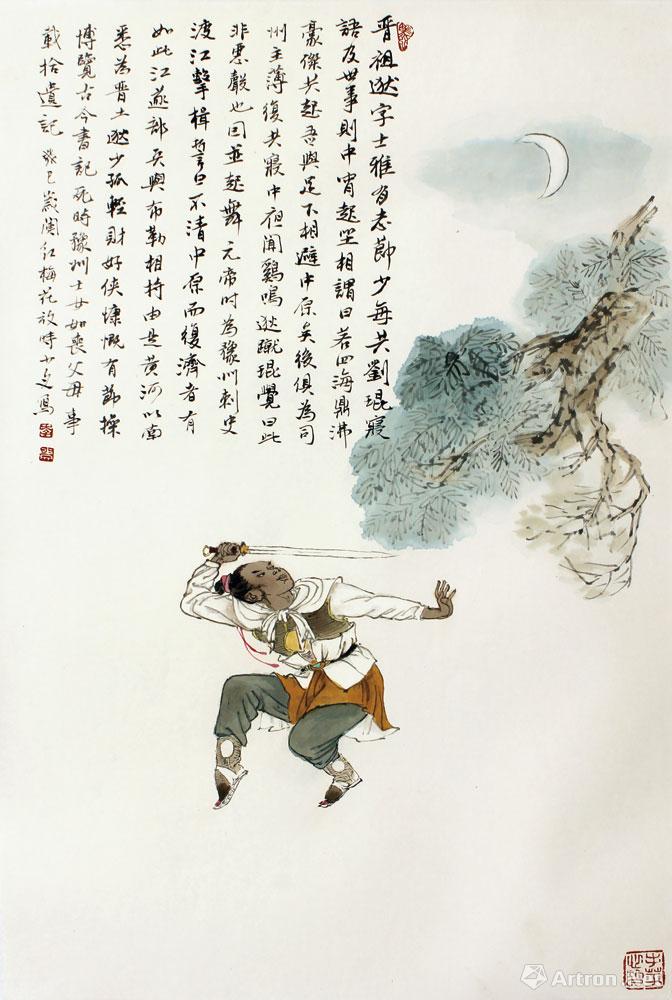 晋祖逖字士雅有志節少每共劉琨寢
語及世事則中宵起坐相謂曰若四海鼎沸
豪傑共起吾與足下相避中原矣後俱為司
州主薄復共寢中夜聞鷄鳴逖蹴琨覺曰此
非惡聲也因並起舞元帝時為豫州刺史
渡江擊楫誓曰不清中原而復濟者有
如此江遂部兵與布勒相持由是黄河以南
悉為晋土逖少孤輕財好俠慷慨有節操
博覽古今書記死時豫州士女如喪父母事
載拾遺記癸巳歲闌紅梅花放時
Artron